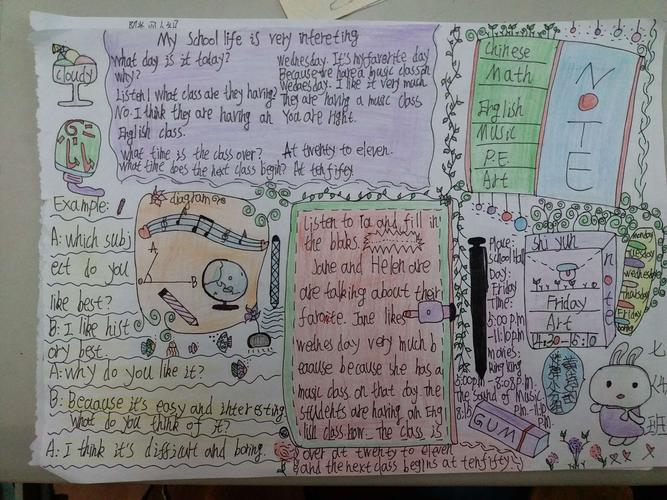 My school life is very intereting
What day is it today?
Wednesday. It's my favorite day
Why?
Because we have a music class on
Wednesday. I like it very much
Listen! what class are they having?
They are having a music class.
No. I think they are having an
English class.
You are right.
What time is the class over?
At twenty to eleven.
What time does the next class begin?
At ten fifty.
cloudy
Chinese
Math
English
Music
P.E.
Art
NOTE
Example:
A: which subj
ect do you
like best?
B: I like hist
ory best.
A: why do you like it?
B: Because it's easy and interesting
what do you think of it?
A: I think it's difficult and boring.
diagram
A
B
Listen to and fill in
the blaks.
Jane and Helen are
are talking about ther
favorite. Jane likes
wednesday very much b
ecause because she has a
music class on that day. The
students are having an Eng
lish class now. The class is
over at twenty to eleven
and the next class begins at ten fifty.
Place:
school Hall
Day:
Friday
Time:
5:00 p.m
-11:00 p.m
movies:
King kong
5:00pm-8:08pm
the Sound of Music
8:15 p.m.-11:00
p.m.
Shi yun
Friday
Art
note
Monday
Tuesday
Wednesday
Thursday
Friday
GUM
七
班